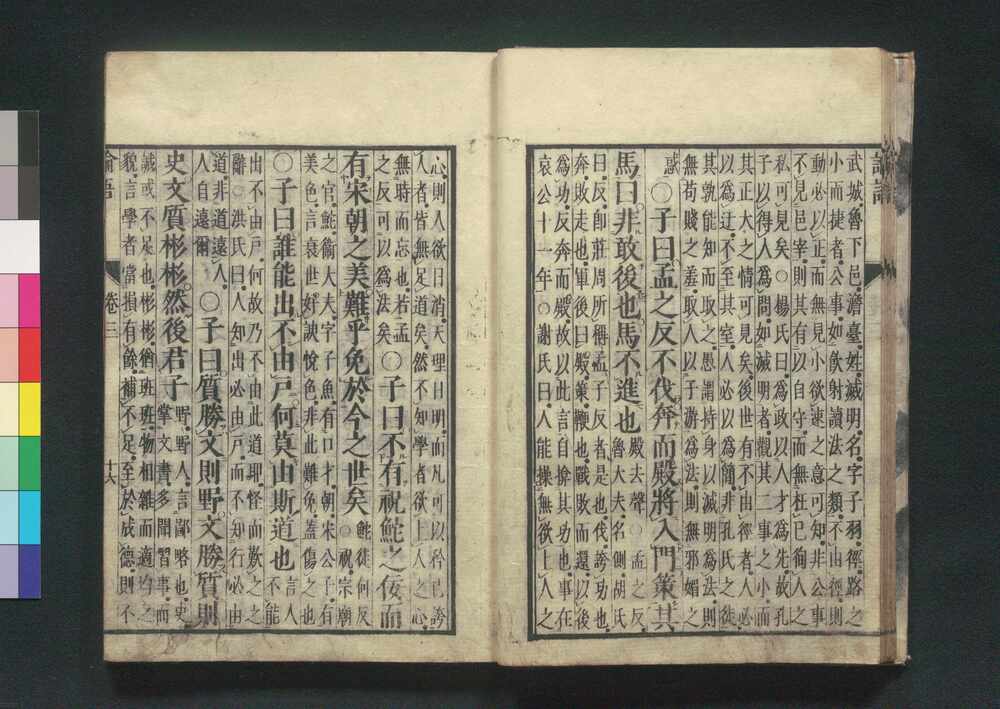 論語
武城魯下邑澹臺姓滅明名字子羽徑路之
小而捷者公事如飲射讀法之類不由徑則
動必以正而無見小欲速之意可知非公事
不見邑宰則其有以自守而無枉己徇人之
私可見矣○楊氏曰爲政以人才爲先故孔
子以得人爲問如滅明者觀其二事之小而
其正大之情可見矣後世有不由徑者人必
以爲迂不至其室人必以爲簡非孔氏之徒
其孰能知而取之愚謂持身以滅明爲法則
無苟賤之羞取人以子游爲法則無邪媚之
惑○子曰孟之反不伐奔而殿將入門策其
馬曰非敢後也馬不進也
殿去聲○孟之反
魯大夫名側胡氏
曰反即莊周所稱孟子反者是也伐誇功也
奔敗走也軍後曰殿策鞭也戰敗而還以後
爲功反奔而殿故以此言自揜其功也事在
哀公十一年○謝氏曰人能操無欲上人之
心則人欲日消天理日明而凡可以矜己誇
人者皆無足道矣然不知學者欲上人之心
無時而忘也若孟
之反可以爲法矣
○子曰不有祝鮀之佞而
有宋朝之美難乎免於今之世矣
鮀徒何反
○祝宗廟
之官鮀衛大夫字子魚有口才朝宋公子有
美色言衰世好諛悅色非此難免蓋傷之也
○子曰誰能出不由戸何莫由斯道也
言人
不能
出不由戸何故乃不由此道邪怪而歎之之
辭○洪氏曰人知出必由戸而不知行必由
道非道遠人
人自遠爾
○子曰質勝文則野文勝質則
史文質彬彬然後君子
野野人言鄙略也史
掌文書多聞習事而
誠或不足也彬彬猶班班物相雜而適均之
貌言學者當損有餘補不足至於成德則不
論語 卷三 十六